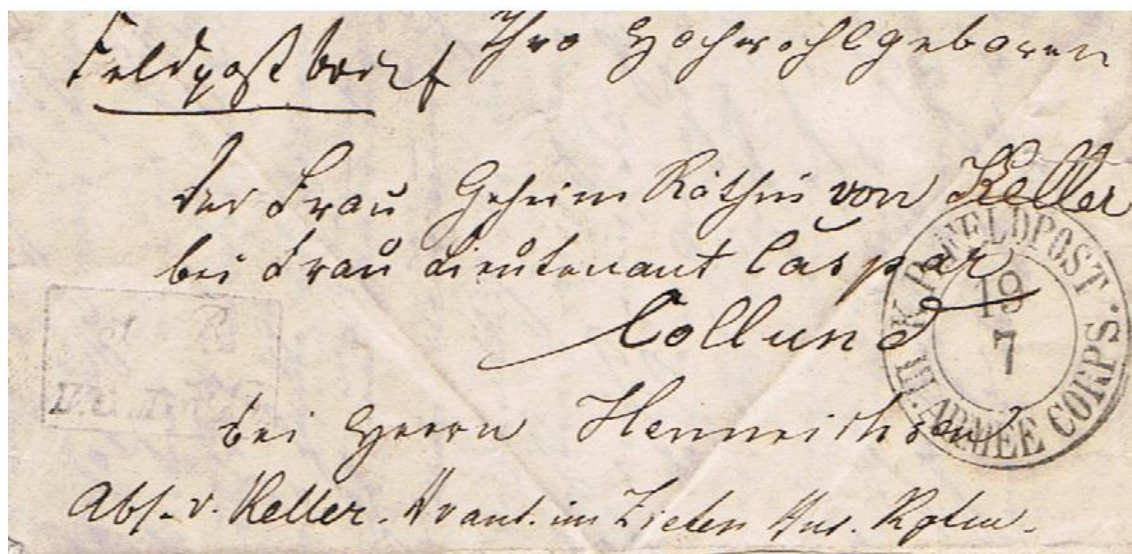 Feldpostbrief
Ihro Hochwohlgeboren
der Frau Geheim Räthin von Keller
bei Frau Lieutenant Caspar
Collund
bei Herrn Hennrichsen
Abs. v. Keller. im Zieten Hus. Rgtm.
K. PR. FELDPOST
III. ARMEE CORPS.
19
7